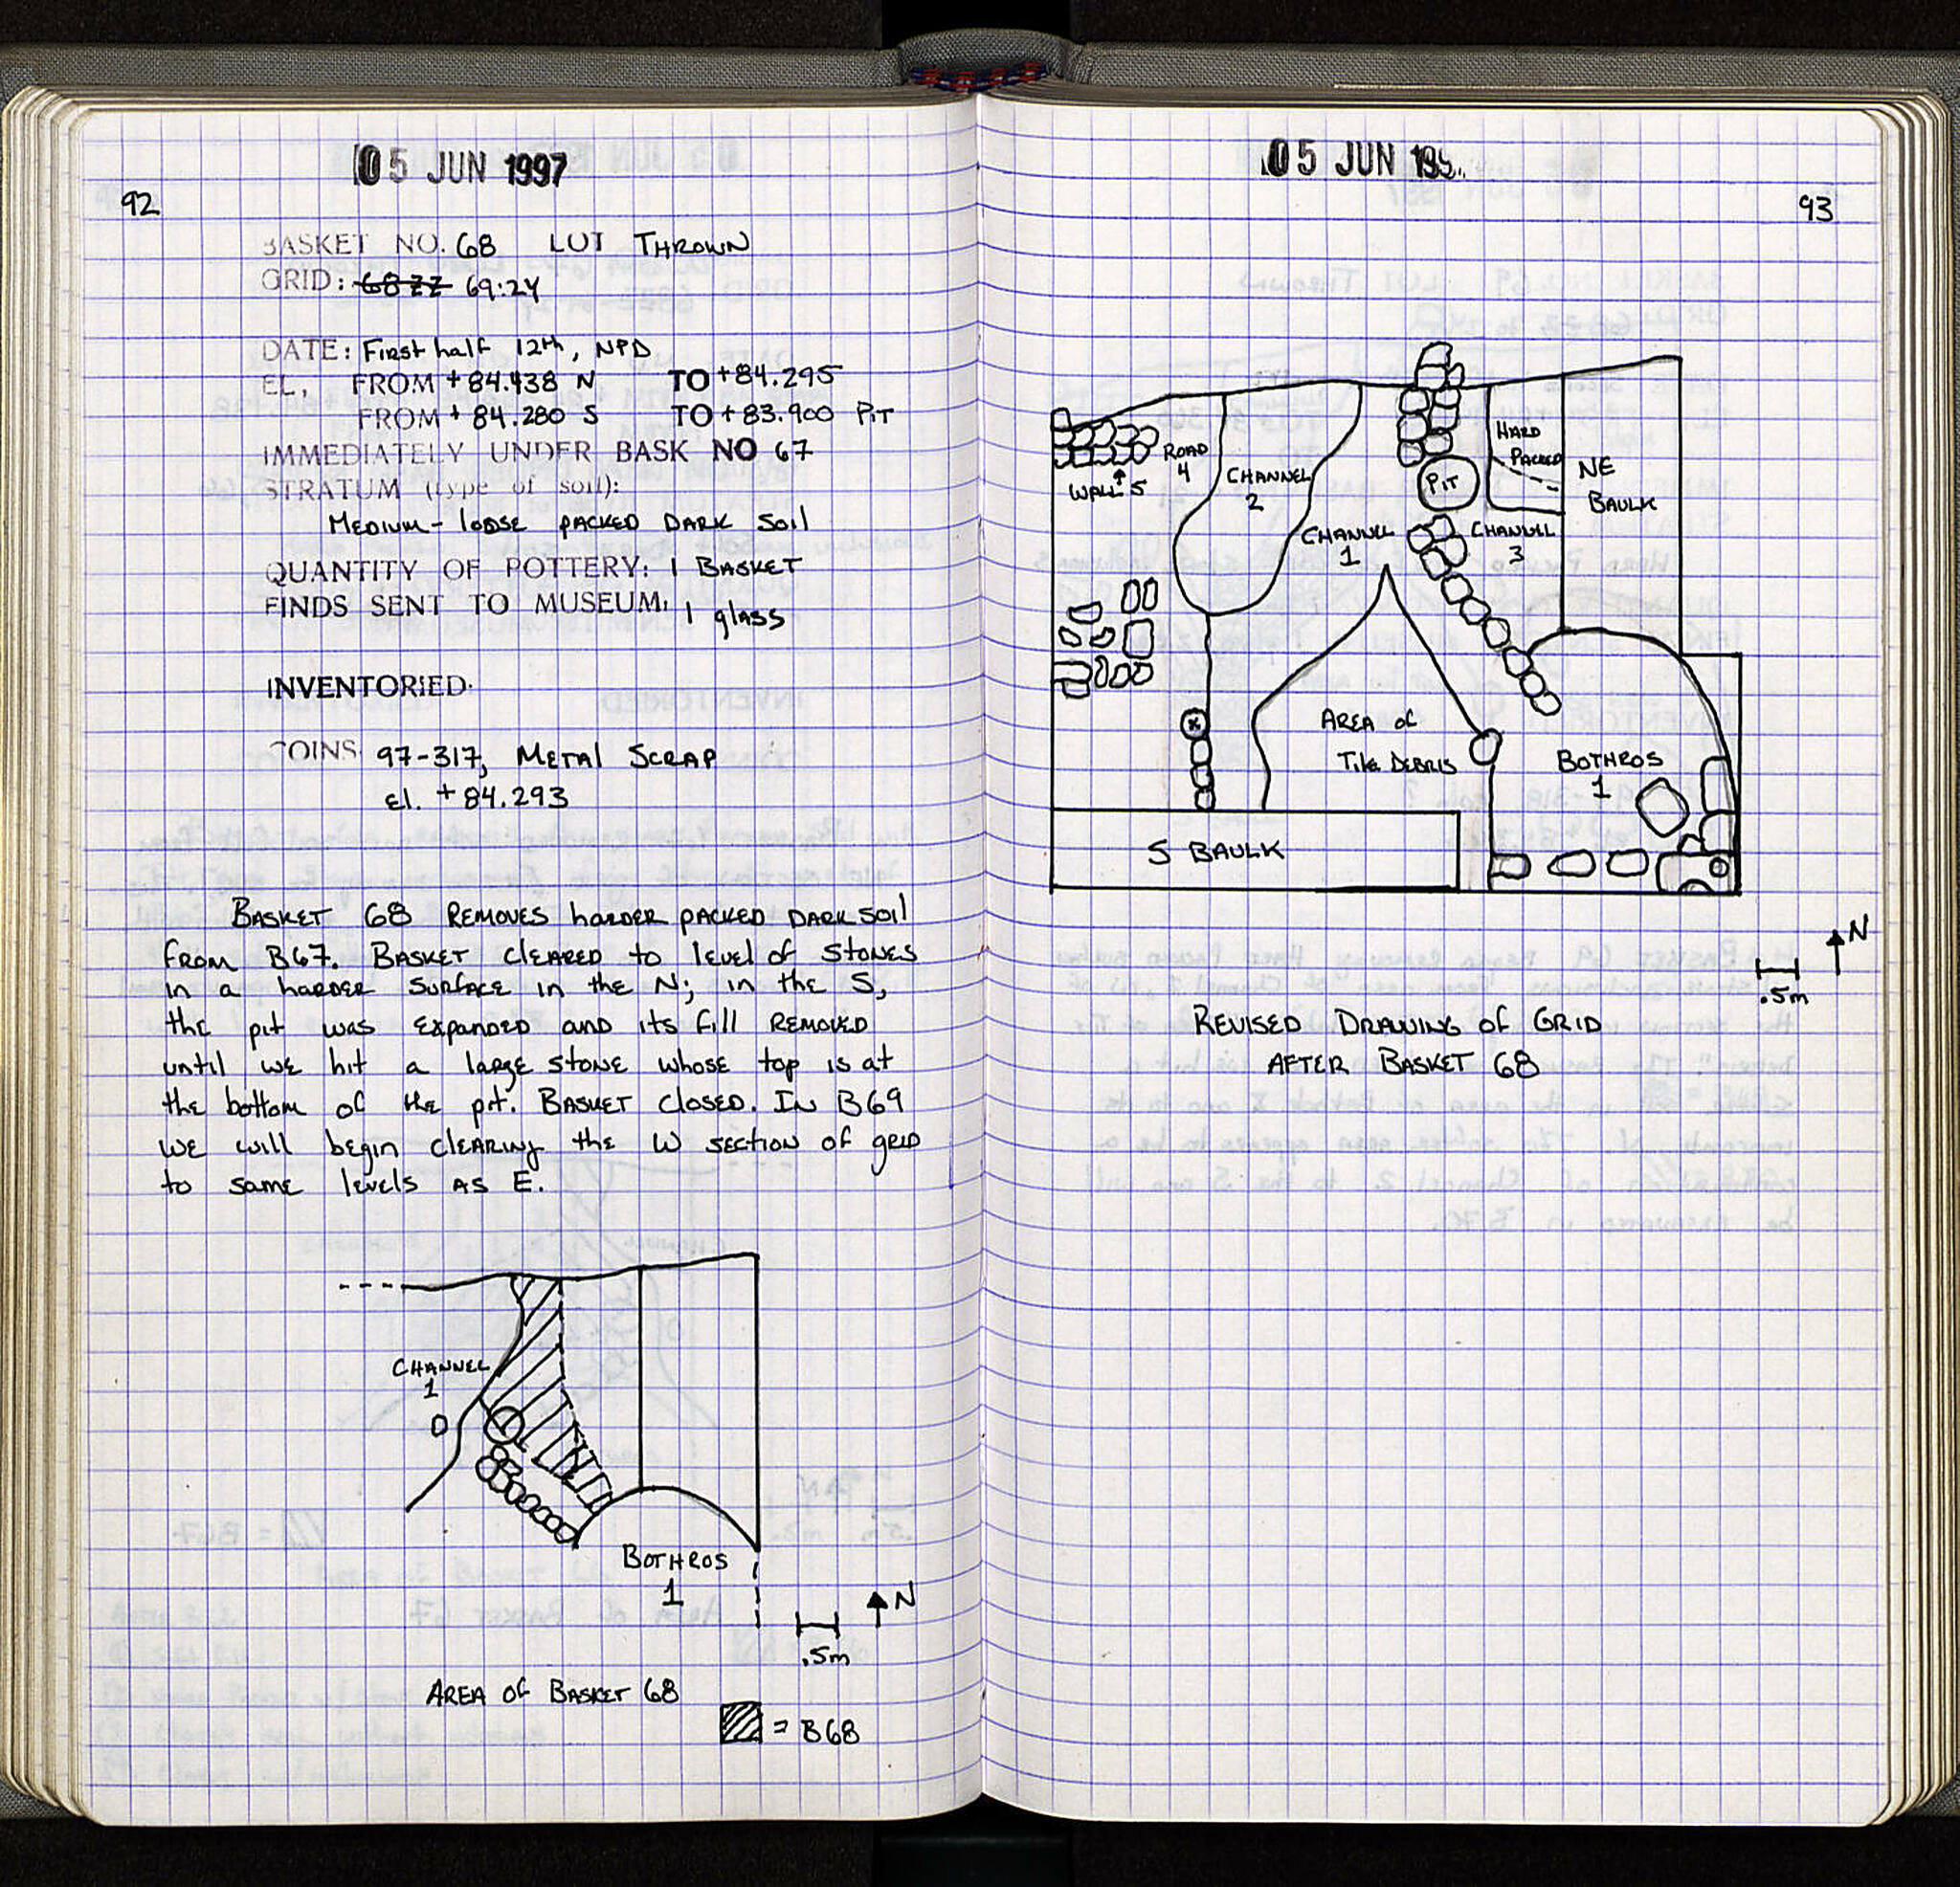 05 JUN 1997
92
BASKET NO. 68 LOT THROWN
GRID: 68ZZ 69:24
DATE: First half 12th, NPD
EL, FROM +84.438 N TO +84.295
FROM + 84.280 S TO + 83.900 Pit
IMMEDIATELY UNDER BASK NO 67
STRATUM (type of soil):
MEDIUM - loose packed DARK Soil
QUANTITY OF POTTERY: 1 BASKET
FINDS SENT TO MUSEUM: 1 glass
INVENTORIED:
COINS: 97-317, METAL SCRAP
el. + 84.293
BASKET 68 REMOVES harder packed DARK soil
from B67. BASKET cleared to level of STONES
in a harder surface in the N; in the S,
the pit was expanded and its fill REMOVED
until we hit a large stone whose top is at
the bottom of the pit. BASKET closed. IN B69
we will begin clearing the W section of grid
to same levels AS E.
CHANNEL
1
BOTHROS
1
N
.5m
AREA of BASKET 68
= B68
05 JUN 199
93
HARD
PACKED
ROAD
4
NE
BAULK
WALL 5
CHANNEL
2
PIT
CHANNEL
1
CHANNEL
3
AREA of
Tile DEBRIS
BOTHROS
1
S BAULK
N
.5m
REVISED DRAWING of GRID
AFTER BASKET 68